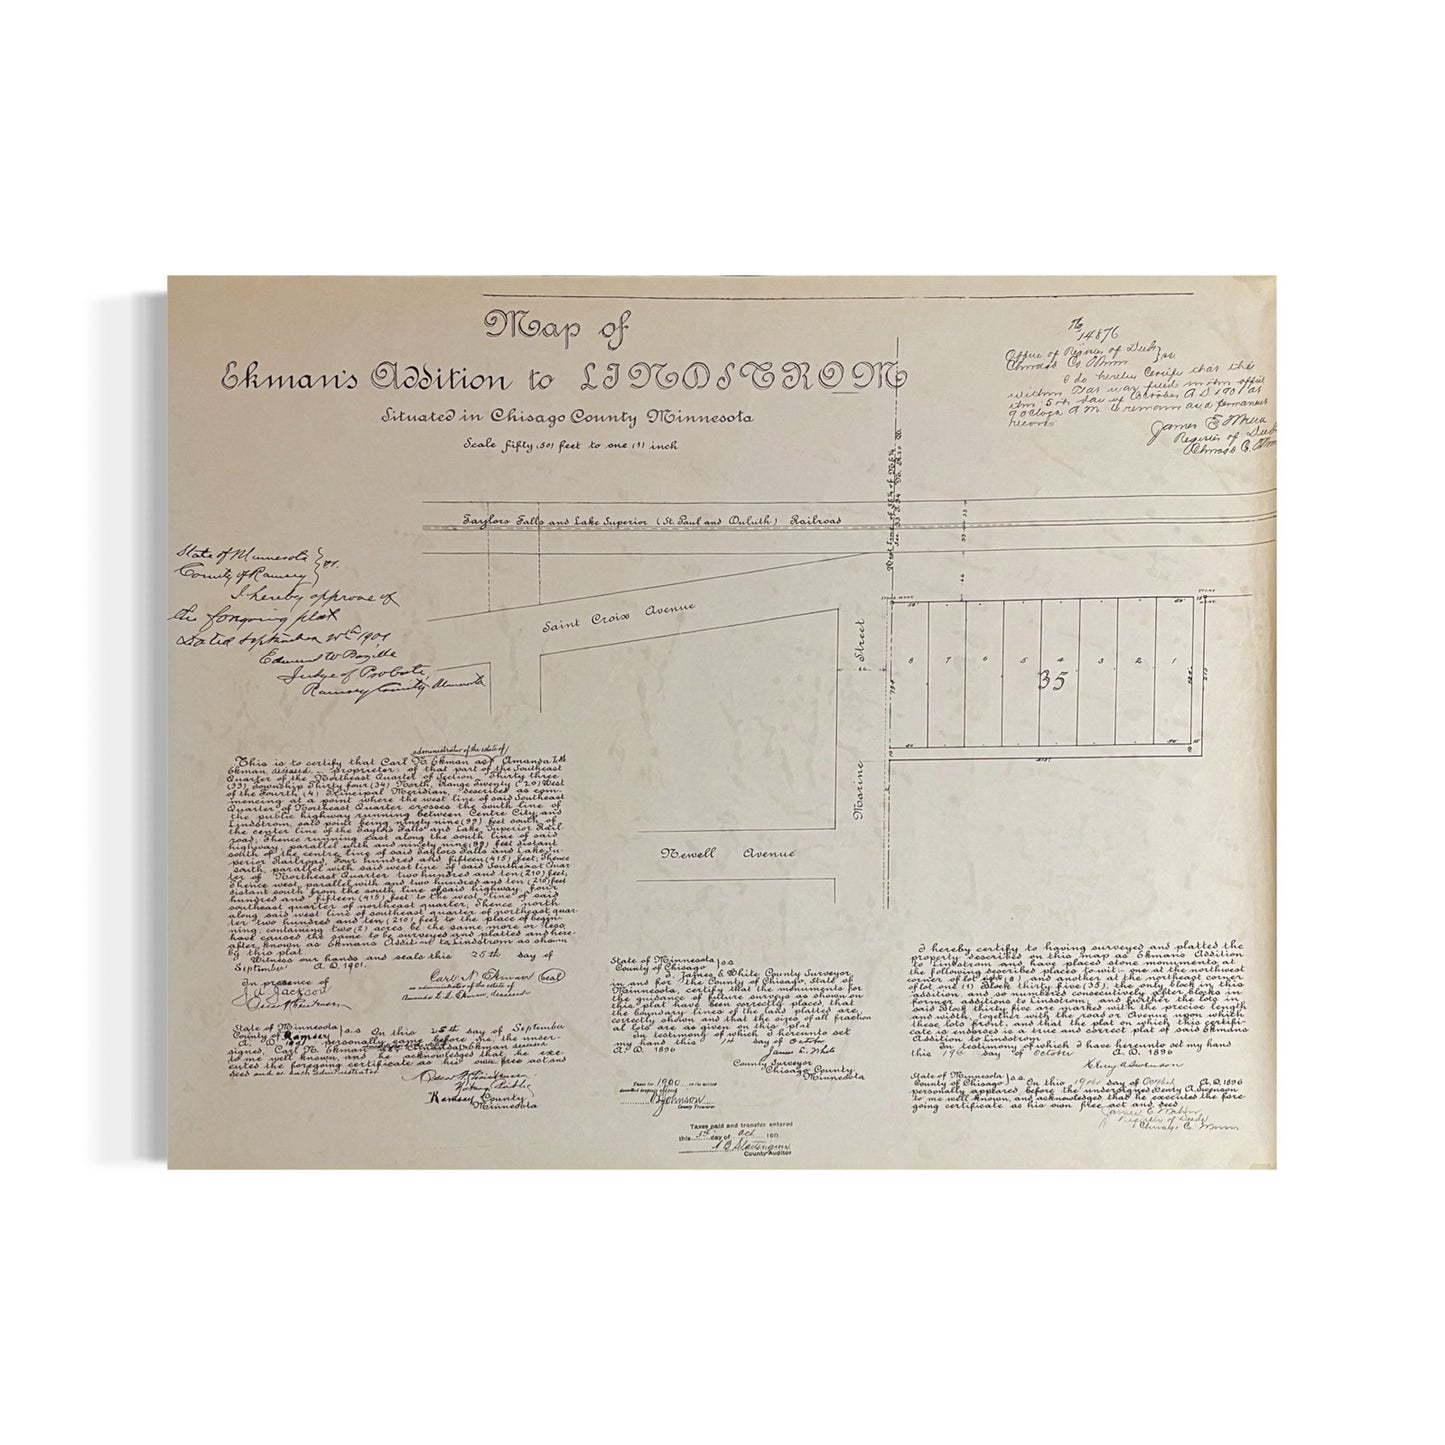 Map of
Ekman's Addition to LINDSTROM
Situated in Chisago County Minnesota
Scale fifty (50) feet to one (1) inch
No
14876
Office of Register of Deeds
Chisago Co. Minn } ss
I do hereby Certify that the
within Plat was filed in this office
this 5th day of October A D 1901 at
9 o'clock A M. to remain as a permanent
record
James E
Register of Deeds
Chisago C.
Taylors Falls and Lake Superior (St. Paul and Duluth) Railroad
State of Minnesota } ss.
County of Ramsey
I hereby approve of
the foregoing plat
Dated September 25th 1901
Edmund W Bazille
Judge of Probate,
Ramsey County, Minnesota
Saint Croix Avenue
Street
Marine
8 7 6 5 4 3 2 1
35
Newell Avenue
administrator of the estate of
This is to certify that Carl N. Ekman as Amanda
Ekman, deceased proprietor of that part of the Southeast
Quarter of the Northeast Quarter of Section Thirty three
(33) Township Thirty four (34) North, Range Twenty (20) West
of the Fourth (4) Principal Meridian, described as com-
mencing at a point where the west line of said Southeast
Quarter of Northeast Quarter crosses the south line of
the public highway running between Centre City and
Lindstrom, said point being ninety nine (99) feet south of
the center line of the Taylors Falls and Lake Superior Rail-
road; Thence running East along the south line of said
highway, parallel with and ninety nine (99) feet distant
south of the centre line of said Taylors Falls and Lake Su-
perior Railroad, Four hundred and fifteen (415) feet; Thence
south, parallel with said west line of said Southeast Quar-
ter of Northeast Quarter two hundred and ten (210) feet;
Thence west, parallel with and two hundred and ten (210) feet
distant south from the south line of said highway, four
hundred and fifteen (415) feet to the west line of said
southeast quarter of northeast quarter; Thence north
along said west line of southeast quarter of northeast quar-
ter two hundred and ten (210) feet to the place of begin-
ning, containing two (2) acres be the same more or less;
have caused the same to be surveyed and platted and here-
after known as Ekmans Addition to Lindstrom as shown
by this plat.
Witness our hands and seals this 25th day of
September A. D. 1901.
In presence of
J. A. Jackson
Carl N Ekman (Seal)
as administrator of the estate of
Ekman, deceased
State of Minnesota } s.s
County of Ramsey On this 25th day of September
A. D. 1901 personally came before me, the under-
signed, Carl N. Ekman Amanda Ekman deceased
to me well known, and he acknowledged that he exe-
cuted the foregoing certificate as his own free act and
deed and as such administrator.
Notary Public
Ramsey County
Minnesota
State of Minnesota } s.s
County of Chisago
I, James E White County Surveyor
in and for the County of Chisago, State of
Minnesota, certify that the monuments for
the guidance of future surveys as shown on
this plat have been correctly placed, that
the boundary lines of the land platted are
correctly shown and that the sizes of all fraction
al lots are as given on this plat
In testimony of which I hereunto set
my hand this 14 day of October
A. D. 1896
James E. White
County Surveyor
Chisago County
Minnesota
Taxes for 1900
Johnson
County Treasurer
Taxes paid and transfer entered
this 5th day of Oct 190
County Auditor
I hereby certify to having surveyed and platted the
property described on this map as Ekmans Addition
to Lindstrom and have placed stone monuments at
the following described places to wit: one at the northwest
corner of lot eight (8) and another at the northeast corner
of lot one (1) Block thirty five (35), the only block in this
addition, and so numbered consecutively after blocks in
former additions to Lindstrom, and further the lots in
said Block thirty five are marked with the precise length
and width, together with the road or Avenue upon which
these lots front, and that the plat on which this certifi-
cate is endorsed is a true and correct plat of said Ekmans
Addition to Lindstrom
In testimony of which I have hereunto set my hand
this 19th day of October A. D. 1896
Henry A Swenson
State of Minnesota } s.s
County of Chisago On this 19th day of October A. D. 1896
personally appeared before the undersigned Henry A. Swenson
to me well known, and acknowledged that he executed the fore
going certificate as his own free act and deed
Register of Deeds
Chisago C. Minn